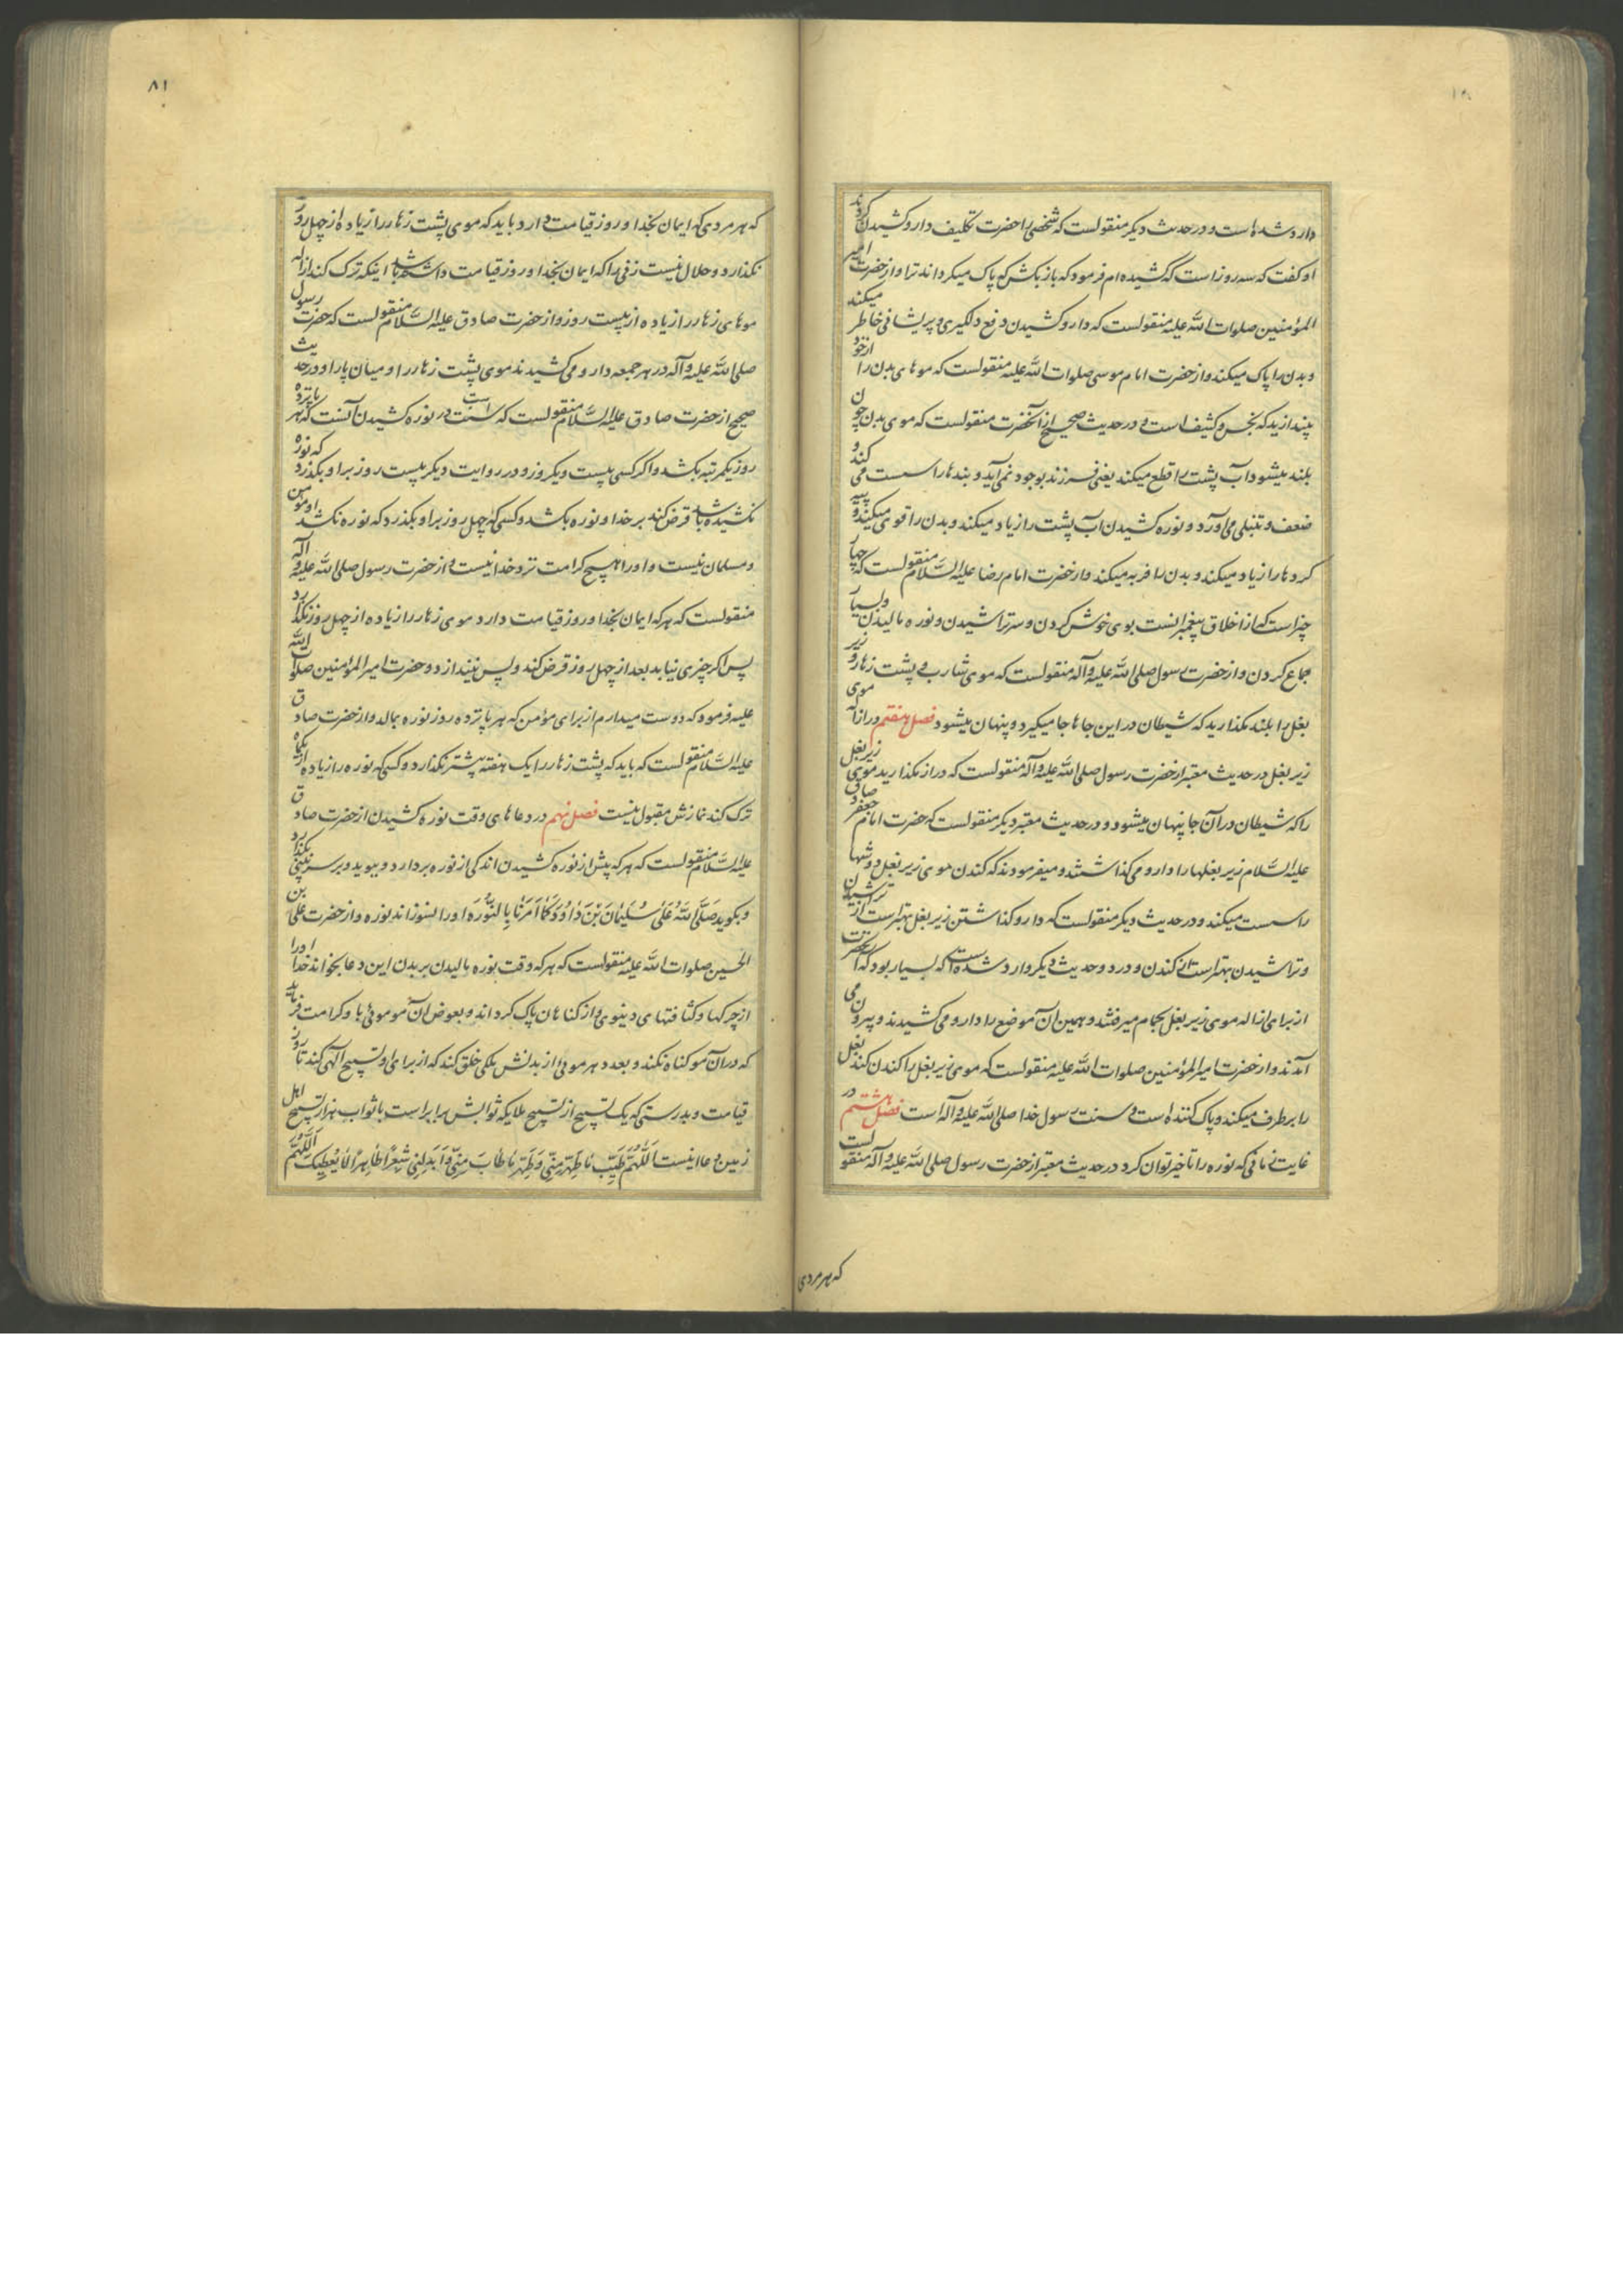 وارد شده است و در حدیث دیگر منقولست که شخصی را حضرت تکلیف دارو کشیدن کردند
او گفت که سه روز است که کشیده‌ام فرمود که باز بکش که پاک میکرداند ترا و از حضرت امیر
المؤمنین صلوات الله علیه منقولست که دارو کشیدن دفع دلگیری و پریشانی خاطر میکند
و بدن را پاک میکند و از حضرت امام موسی صلوات الله علیه منقولست که موهای بدن را از خود
بیندازید که نجس و کثیف است و در حدیث صحیح از آنحضرت منقولست که موی بدن چون
بلند میشود آب پشت را قطع میکند یعنی فرزند بوجود نمی‌آید و بندها را سست می کند و
ضعف و تنبلی می‌آورد و نوره کشیدن آب پشت را زیاد میکند و بدن را قوی میکند و پیه
کردها را زیاد میکند و بدن را فربه میکند و از حضرت امام رضا علیه السّلام منقولست که چهار
چیز است که از اخلاق پیغمبرانست بوی خوش کردن و سر تراشیدن و نوره مالیدن و بسیار
جماع کردن و از حضرت رسول صلی الله علیه و آله منقولست که موی شارب و پشت زهار و زیر
بغل را بلند مگذارید که شیطان در این جاها جا میگیرد و پنهان میشود فصل هفتم در ازاله موی
زیر بغل در حدیث معتبر از حضرت رسول صلی الله علیه و آله منقولست که دراز مگذارید موی زیر بغل
را که شیطان در آن جا پنهان میشود و در حدیث معتبر دیگر منقولست که حضرت امام جعفر صادق
علیه السّلام زیر بغلها را دارو می گذاشتند و میفرمودند که کندن موی زیر بغل دوشها
را سست میکند و در حدیث دیگر منقولست که دارو گذاشتن زیر بغل بهتر است از تراشیدن
و تراشیدن بهتر است از کندن و در دو حدیث دیگر وارد شده است که بسیار بود که آنحضرت
از برای ازاله موی زیر بغل بحمام میرفتند و همین آن موضع را دارو می کشیدند و بیرون می
آمدند و از حضرت امیر المؤمنین صلوات الله علیه منقولست که موی زیر بغل را کندن کند بغل
را برطرف میکند و پاک کننده است و سنت رسول خدا صلی الله علیه و آله است فصل هشتم در
غایت زمانی که نوره را تاخیر توان کرد در حدیث معتبر از حضرت رسول صلی الله علیه و آله منقولست
که هر مردی
۸۱
که هر مردی که ایمان بخدا و روز قیامت دارد باید که موی پشت زهار را زیاده از چهل روز
نگذارد و حلال نیست زنی را که ایمان بخدا و روز قیامت داشته باشد اینکه ترک کند ازاله
موهای زهار را زیاده از بیست روز و از حضرت صادق علیه السّلام منقولست که حضرت رسول
صلی الله علیه و آله در هر جمعه دارو می کشیدند موی پشت زهار را و میان پا را و در حدیث
صحیح از حضرت صادق علیه السّلام منقولست که سنت در نوره کشیدن آنست که هر پانزده
روز یکمرتبه بکشد و اگر کسی بیست و یکروز و در روایت دیگر بیست روز براو بگذرد که نوره
نکشیده باشد قرض کند بر خدا و نوره بکشد و کسی که چهل روز براو بگذرد که نوره نکشد او مومن
و مسلمان نیست و او را هیچ کرامت نزد خدا نیست و از حضرت رسول صلی الله علیه و آله
منقولست که هر که ایمان بخدا و روز قیامت دارد موی زهار را زیاده از چهل روز نگذارد
پس اگر چیزی نیابد بعد از چهل روز قرض کند و پس نیندازد و حضرت امیر المؤمنین صلوات الله
علیه فرمود که دوست میدارم از برای مؤمن که هر پانزده روز نوره بمالد و از حضرت صادق
علیه السّلام منقولست که باید که پشت زهار را یک هفته بیشتر نگذارد و کسی که نوره را زیاده از یکماه
ترک کند نمازش مقبول نیست فصل نهم در دعاهای وقت نوره کشیدن از حضرت صادق
علیه السّلام منقولست که هر که پیش از نوره کشیدن اندکی از نوره بردارد و ببوید و بر سر بینی بگذارد
و بگوید صَلَّی اللّٰهُ عَلٰی سُلَیْمٰانَ بْنَ دٰاوُدَ کَمٰا اَمَرَنٰا بِالنُّورَه او را نسوزاند نوره و از حضرت علی بن
الحسین صلوات الله علیه منقولست که هر که وقت نوره مالیدن بر بدن این دعا بخواند خدا او را
از چرکها و کثافتهای دنیوی و از گناهان پاک گرداند و بعوض آن مو موئی باو کرامت فرماید
که در آن مو گناه نکند و بعدد هر موئی از بدنش ملکی خلق کند که از برای او تسبیح الهی کند تا روز
قیامت و بدرستی که یک تسبیح از تسبیح ملایکه ثوابش برابر است با ثواب هزار تسبیح اهل
زمین و دعا اینست اَللّٰهُمَّ طَیِّبْ مٰا طَهُرَ مِنّی وَ طَهِّرْ مٰا طٰابَ مِنّی وَ اَبْدِلْنی شَعْرًا طٰاهِرًا لٰا یَعْصیکَ اَللّٰهُمَّ